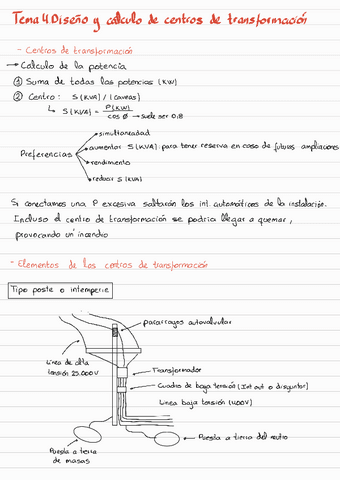 Tema 4. Diseño y cálculo de centros de transformación
- Centros de transformación
→ Cálculo de la potencia
① Suma de todas las potencias (KW)
② Centro: S(KVA) / (cargas)
↳ S(KVA) = P(KW) / cos Ø → suele ser 0,8
Preferencias
simultaneadad
aumentar S(KVA) para tener reserva en caso de futuras ampliaciones
rendimiento
reducir S(KVA)
Si conectamos una P excesiva saltarán los int. automáticos de la instalación.
Incluso el centro de transformación se podría llegar a quemar,
provocando un incendio
- Elementos de los centros de transformación
Tipo poste o intemperie
pararrayos autovalvular
Línea de alta
tensión 25.000V
Transformador
Cuadro de baja tensión (Int aut o disyuntor)
Línea baja tensión (400V)
Puesta a tierra del neutro
Puesta a tierra
de masas